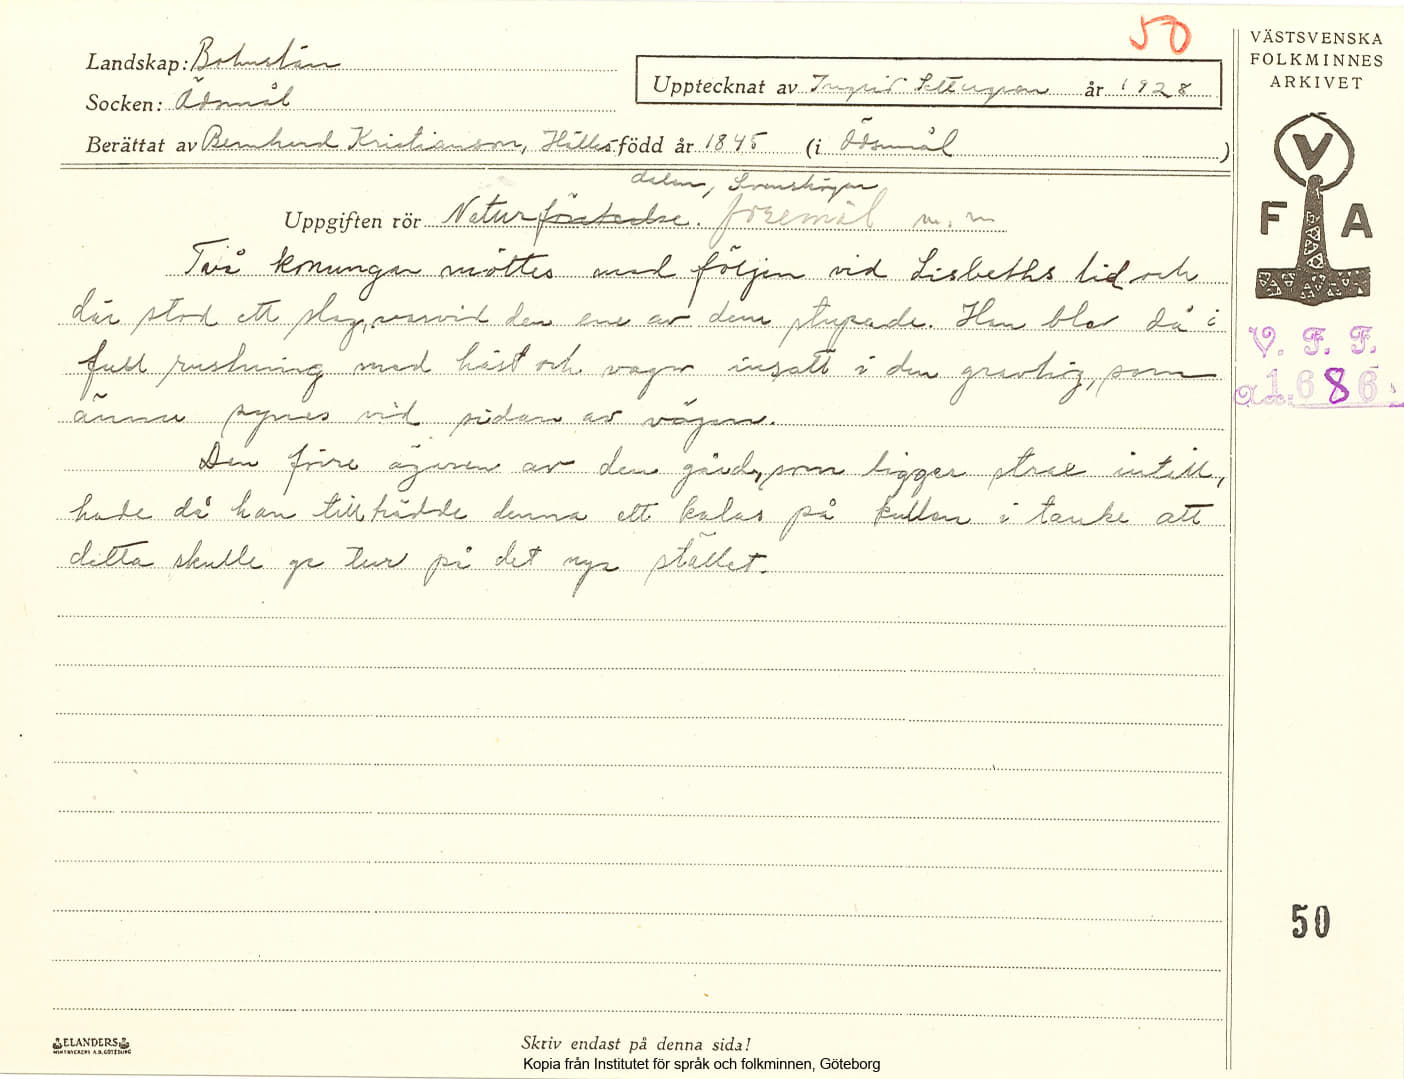 50
VÄSTSVENSKA
FOLKMINNES
ARKIVET
Landskap: Bohuslän
Upptecknat av Ingrid år 1928
Socken: Ödsmål
Berättat av Bernhard Kristianson, Hälles född år 1845 (i Ödsmål)
dalen, Svenshögen
Uppgiften rör Naturföreteelse. föremål m. m
V
F A
Två konungar möttes med följen vid Lisbeths lid och
där stod ett slag, varvid den ene av dem stupade. Han blev då i
full rustning med häst och vagn insatt i den gravhög, som
ännu synes vid sidan av vägen.
Den förre ägaren av den gård, som ligger strax intill,
hade då han tillträdde denna ett kalas på kullen i tanke att
detta skulle ge tur på det nya stället.
V. F. F.
1686
50
ELANDERS
Skriv endast på denna sida!
Kopia från Institutet för språk och folkminnen, Göteborg